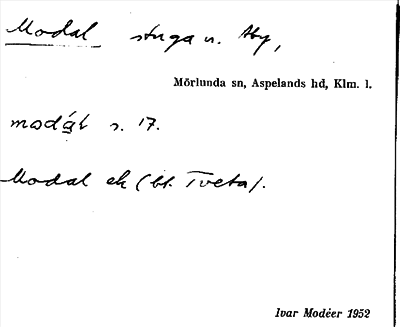 Modal stuga u. Aby,
Mörlunda sn, Aspelands hd, Klm. l.
modạ́l s. 17.
Modal ek (bl. Tveta).
Ivar Modéer 1952